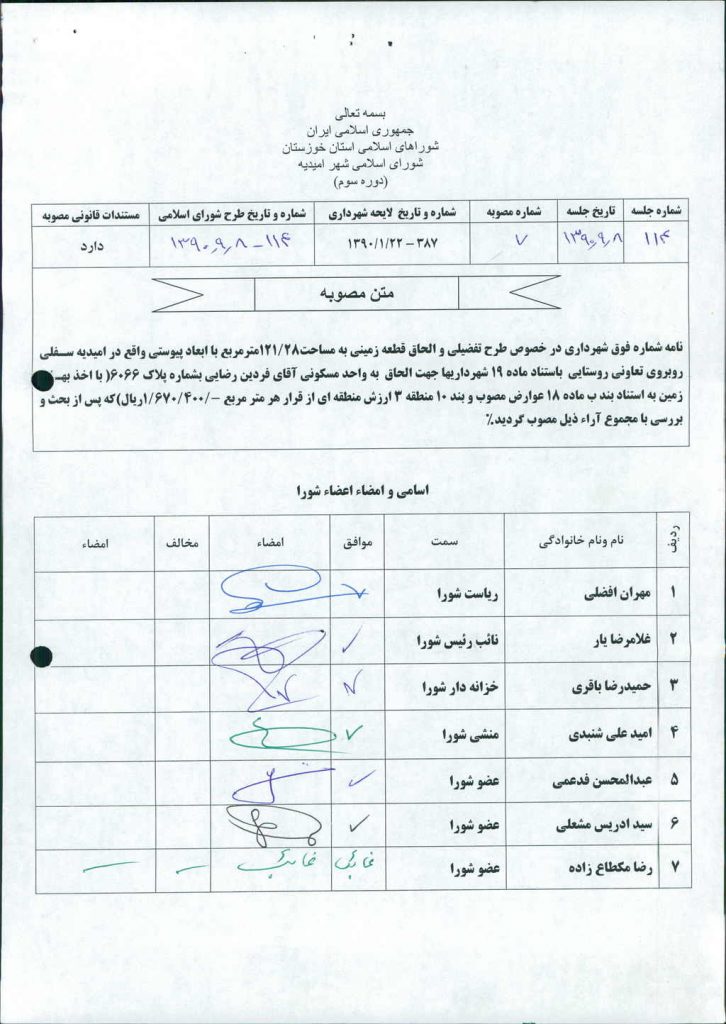 بسمه تعالی
جمهوری اسلامی ایران
شوراهای اسلامی استان خوزستان
شورای اسلامی شهر امیدیه
(دوره سوم)
شماره جلسه تاریخ جلسه شماره مصوبه شماره و تاریخ لایحه شهرداری شماره و تاریخ طرح شورای اسلامی مستندات قانونی مصوبه
۱۱۴ ۱۳۹۰،۹،۸ ۷ ۳۸۷ – ۱۳۹۰/۱/۲۲ ۱۱۴ – ۱۳۹۰،۹،۸ دارد
متن مصوبه
نامه شماره فوق شهرداری در خصوص طرح تفضیلی و الحاق قطعه زمینی به مساحت۱۲۱/۲۸مترمربع با ابعاد پیوستی واقع در امیدیه سـفلی
روبروی تعاونی روستایی باستناد ماده ۱۹ شهرداریها جهت الحاق به واحد مسکونی آقای فردین رضایی بشماره پلاک ۶۰۶۶( با اخذ بهـ
زمین به استناد بند ب ماده ۱۸ عوارض مصوب و بند ۱۰ منطقه ۳ ارزش منطقه ای از قرار هر متر مربع –/۱/۶۷۰/۴۰۰ریال)که پس از بحث و
بررسی با مجموع آراء ذیل مصوب گردید.٪
اسامی و امضاء اعضاء شورا
ردیف نام ونام خانوادگی سمت موافق امضاء مخالف امضاء
۱ مهران افضلی ریاست شورا
۲ غلامرضا یار نائب رئیس شورا
۳ حمیدرضا باقری خزانه دار شورا
۴ امید علی شنبدی منشی شورا
۵ عبدالمحسن فدعمی عضو شورا
۶ سید ادریس مشعلی عضو شورا
۷ رضا مکطاع زاده عضو شورا غایب غایب — —